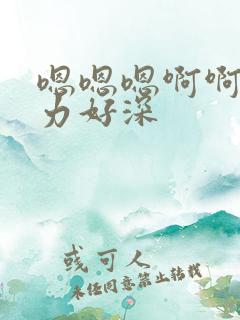 嗯嗯嗯啊啊
力好深
或可人
未经同意禁止转载